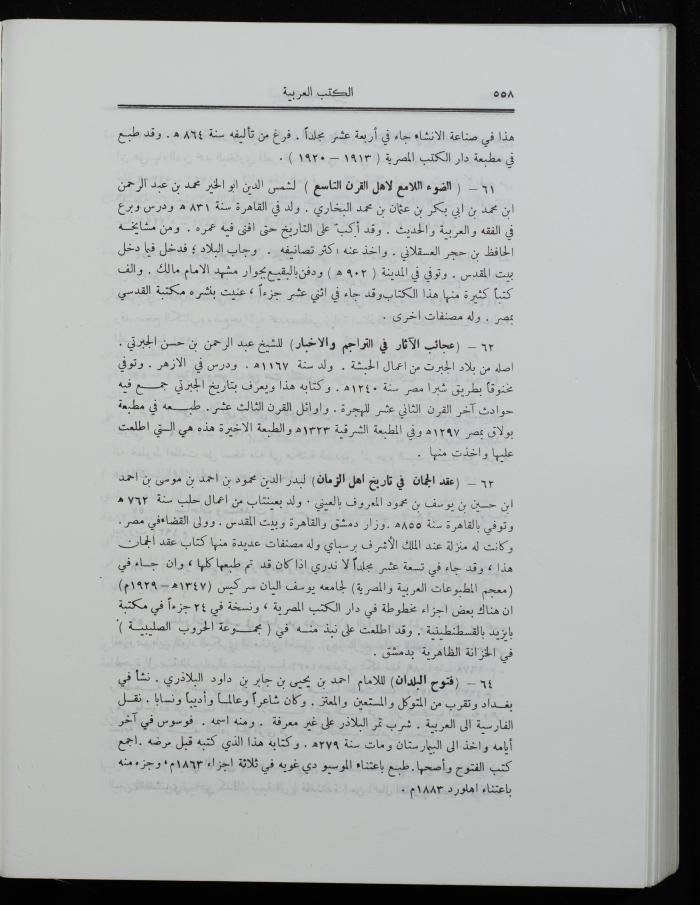 ٥٥٨
الكتب العربية
هذا في صناعة الانشاء جاء في أربعة عشر مجلداً . فرغ من تأليفه سنة ٨٦٤ ه. وقد طبع
في مطبعة دار الكتب المصرية ( ١٩١٣ – ١٩٢٠ ) .
٦١ – ( الضوء اللامع لاهل القرن التاسع ) لشمس الدين ابو الخير محمد بن عبد الرحمن
ابن محمد بن ابي بكر بن عثمان بن محمد البخاري . ولد في القاهرة سنة ٨٣١ ه ودرس وبرع
في الفقه والعربية والحديث . وقد أكبّ على التاريخ حتى افنى فيه عمره . ومن مشايخه
الحافظ بن حجر العسقلاني . واخذ عنه اكثر تصانيفه . وجاب البلاد ؛ فدخل فيما دخل
بيت المقدس . وتوفي في المدينة ( ٩٠٢ ه ) ودفن بالبقيع بجوار مشهد الامام مالك . والف
كتباً كثيرة منها هذا الكتاب وقد جاء في اثني عشر جزءاً ؛ عنيت بنشره مكتبة القدسي
بمصر . وله مصنفات اخرى .
٦٢ – (عجائب الآثار في التراجم والاخبار) للشيخ عبد الرحمن بن حسن الجبرتي .
اصله من بلاد الجبرت من اعمال الحبشة . ولد سنة ١١٦٧ ه . ودرس في الازهر . وتوفي
مخنوقاً بطريق شبرا مصر سنة ١٢٤٠ه . وكتابه هذا ويعرف بتاريخ الجبرتي جمع فيه
حوادث آخر القرن الثاني عشر للهجرة . واوائل القرن الثالث عشر. طبعه في مطبعة
بولاق بمصر ١٢٩٧ه وفي المطبعة الشرقية ١٣٢٣ه والطبعة الاخيرة هذه هي التي اطلعت
عليها واخذت منها .
٦٢ – (عقد الجمان في تاريخ اهل الزمان) لبدر الدين محمود بن احمد بن موسى بن احمد
ابن حسين بن يوسف بن محمود المعروف بالعيني . ولد بعينتاب من اعمال حلب سنة ٧٦٢ ه
وتوفي بالقاهرة سنة ٨٥٥ه . وزار دمشق والقاهرة وبيت المقدس . وولى القضاء في مصر .
وكانت له منزلة عند الملك الأشرف برسباي وله مصنفات عديدة منها كتاب عقد الجمان
هذا ، وقد جاء في تسعة عشر مجلداً لا ندري اذا كان قد تم طبعها كلها ، وان جاء في
(معجم المطبوعات العربية والمصرية) لجامعه يوسف اليان سركيس (١٣٤٧ه – ١٩٢٩م)
ان هناك بعض اجزاء مخطوطة في دار الكتب المصرية ، ونسخة في ٢٤ جزءاً في مكتبة
بايزيد بالقسطنطينية . وقد اطلعت على نبذ منه في ( مجموعة الحروب الصليبية )
في الخزانة الظاهرية بدمشق .
٦٤ – (فتوح البلدان) للامام احمد بن يحيى بن جابر بن داود البلاذري . نشأ في
بغداد وتقرب من المتوكل والمستعين والمعتز . وكان شاعراً وعالماً وأديباً ونسابا . نقل
الفارسية الى العربية . شرب تمر البلاذر على غير معرفة . ومنه اسمه . فوسوس في آخر
أيامه واخذ الى البيمارستان ومات سنة ٢٧٩ه . وكتابه هذا الذي كتبه قبل مرضه . اجمع
كتب الفتوح وأصحها . طبع باعتناء الموسيو دي غويه في ثلاثة اجزاء ١٨٦٣م ، وجزء منه
باعتناء اهلورد ١٨٨٣م .